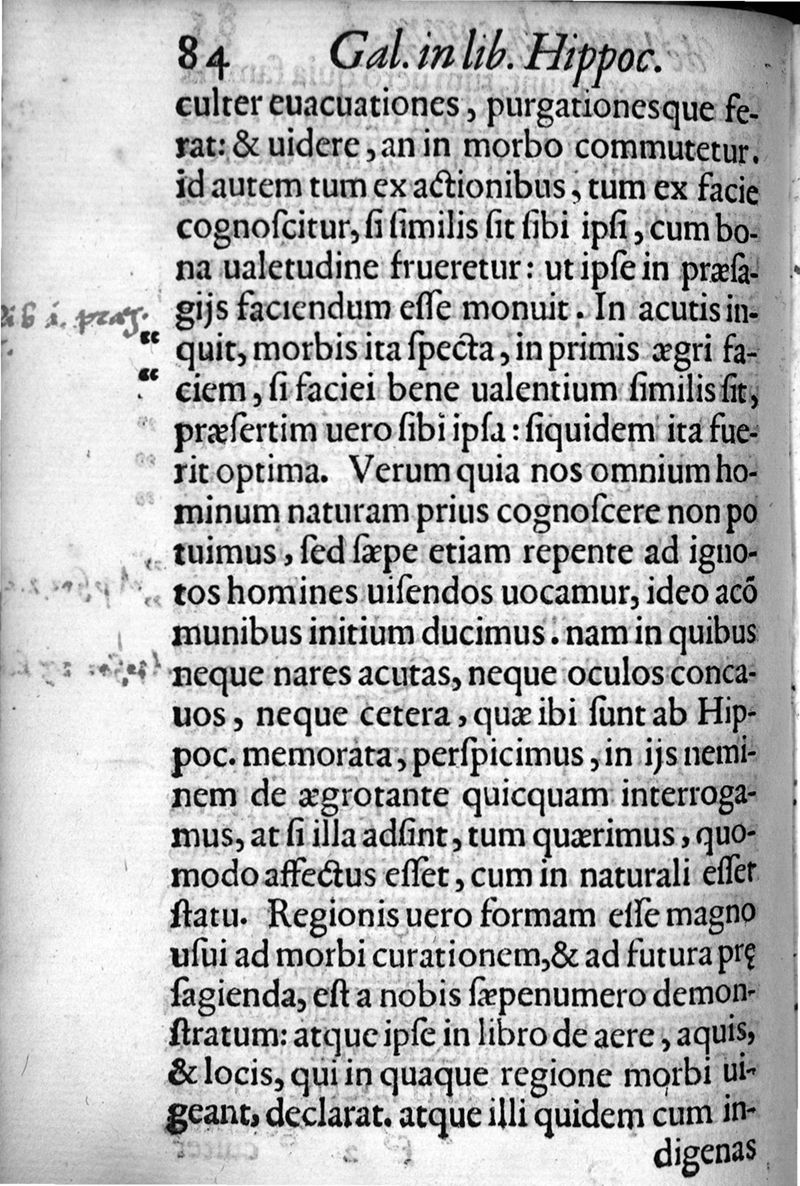 84 Gal. in lib. Hippoc.
culter euacuationes, purgationesque fe-
rat: & uidere, an in morbo commutetur.
id autem tum ex actionibus, tum ex facie
cognoſcitur, ſi ſimilis ſit ſibi ipſi, cum bo-
na ualetudine frueretur: ut ipſe in præſa-
gijs faciendum eſſe monuit. In acutis in-
quit, morbis ita ſpecta, in primis ægri fa-
ciem, ſi faciei bene ualentium ſimilis ſit,
præſertim uero ſibi ipſa: ſiquidem ita fue-
rit optima. Verum quia nos omnium ho-
minum naturam prius cognoſcere non po
tuimus, ſed ſæpe etiam repente ad igno-
tos homines uiſendos uocamur, ideo acõ
munibus initium ducimus. nam in quibus
neque nares acutas, neque oculos conca-
uos, neque cetera, quæ ibi ſunt ab Hip-
poc. memorata, perſpicimus, in ijs nemi-
nem de ægrotante quicquam interroga-
mus, at ſi illa adſint, tum quærimus, quo-
modo affectus eſſet, cum in naturali eſſet
ſtatu. Regionis uero formam eſſe magno
uſui ad morbi curationem, & ad futura prę
ſagienda, eſt a nobis ſæpenumero demon-
ſtratum: atque ipſe in libro de aere, aquis,
& locis, qui in quaque regione morbi ui-
geant, declarat. atque illi quidem cum in-
digenas